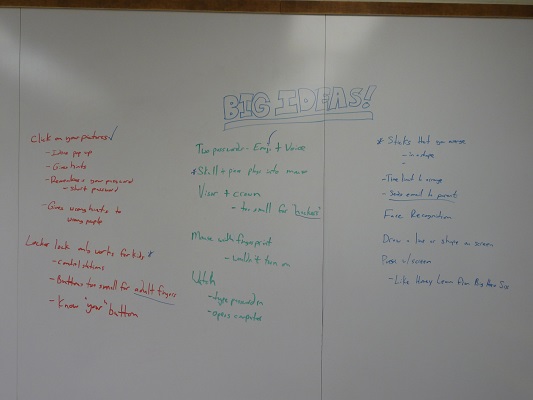 BIG IDEAS!
Click on your pictures
- Ideas pop up
- Gives hints
- Remembers your password
- short password
- Gives wrong hints to
wrong people
Locker lock only works for kids *
- combinations
- Buttons too small for adult fingers
- Know "your" button
Two passwords - + Voice
* Skill + into
Visor + crown
- too small for
Mouse with fingerprint
- wouldn't turn on
Watch
- type password in
- opens computer
* Sticks that you arrange
- in shape
-
- Time limit to arrange
- Sends email to parent
Face Recognition
Draw a line or shape on screen
w/ crown
- Like Honey Lemon from Big Hero Six